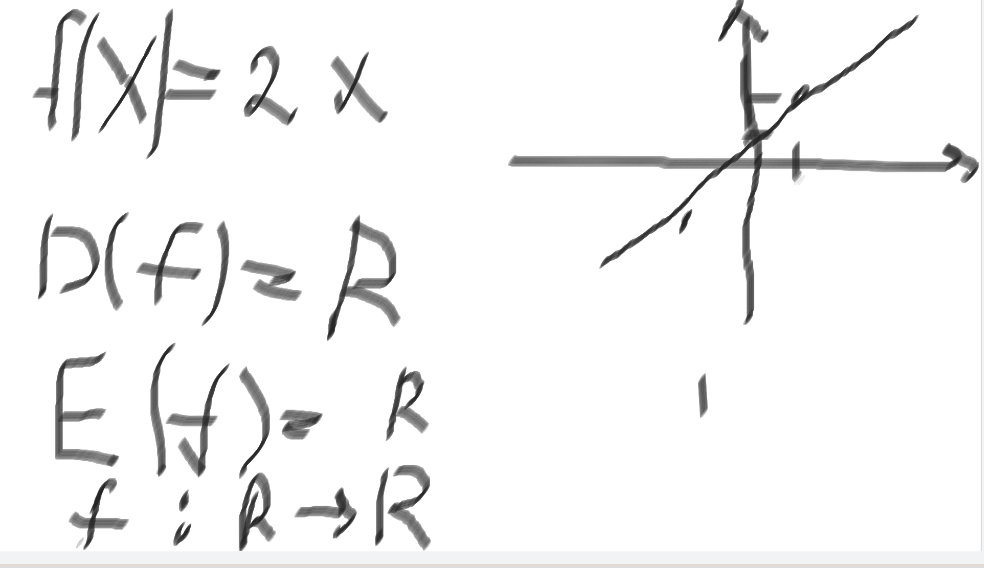 f(x)=2x
D(f)=R
E(f)=R
f:R→R